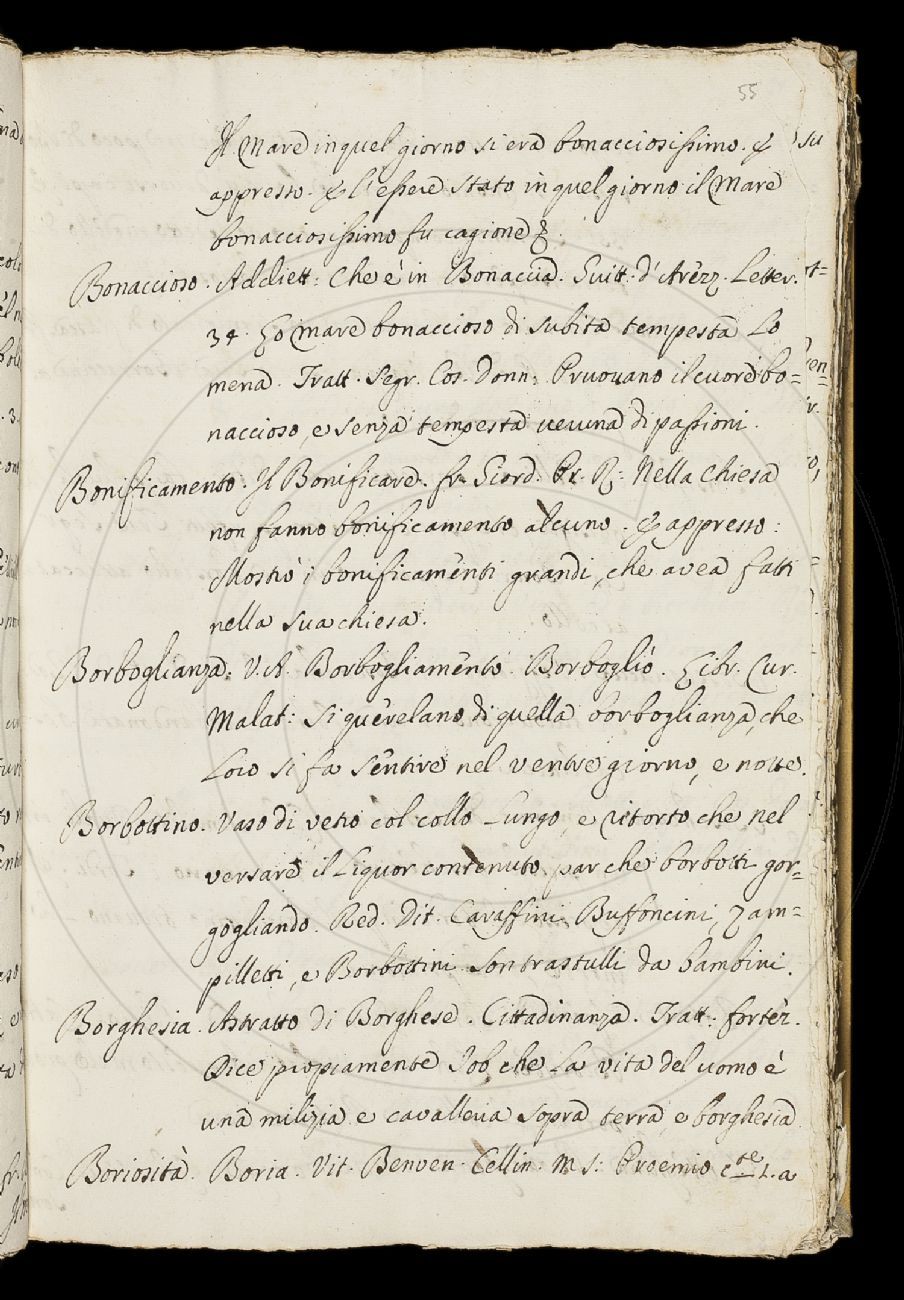 55
Il Mare in quel giorno si era bonacciosissimo. &
appresso. & l'essere stato in quel giorno il Mare
bonacciosissimo fu cagione &.
Bonaccioso. Addiett: Che è in Bonaccia. Guitt. d'Arezz. Letter.
34. Lo mare bonaccioso di subita tempesta Lo
mena. Tratt. Segr. Cos. Donn. Pruovano il cuore bo=
naccioso, e senza tempesta veruna di passioni.
Bonificamento. Il Bonificare. fr. Giord. Pr. R: Nella Chiesa
non fanno bonificamento alcuno. & appresso:
Mostrò i bonificamenti grandi, che avea fatti
nella sua chiesa.
Borboglianza. V.A. Borbogliamento. Borboglio. Libr. Cur.
Malat: Si querelano di quella borboglianza, che
Loro si fa sentire nel ventre giorno, e notte.
Borbottino. Vaso di vetro col collo Lungo, e ritorto che nel
versare il Liquor contenuto par che borbotti gor=
gogliando. Red. Dit. Caraffini Buffoncini, Zam=
pilletti, e Borbottini son trastulli da bambini.
Borghesia. Astratto di Borghese. Cittadinanza. Tratt. fortez.
Dice propiamente Job, che La vita del uomo è
una milizia e cavalleria sopra terra e borghesia
Boriosità. Boria. Vit. Benven. Cellin. M S: Proemio c.te 1. a